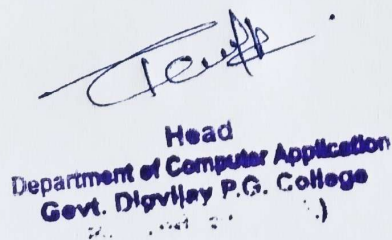 Head
Department of Computer Application
Govt. Digvijay P.G. College